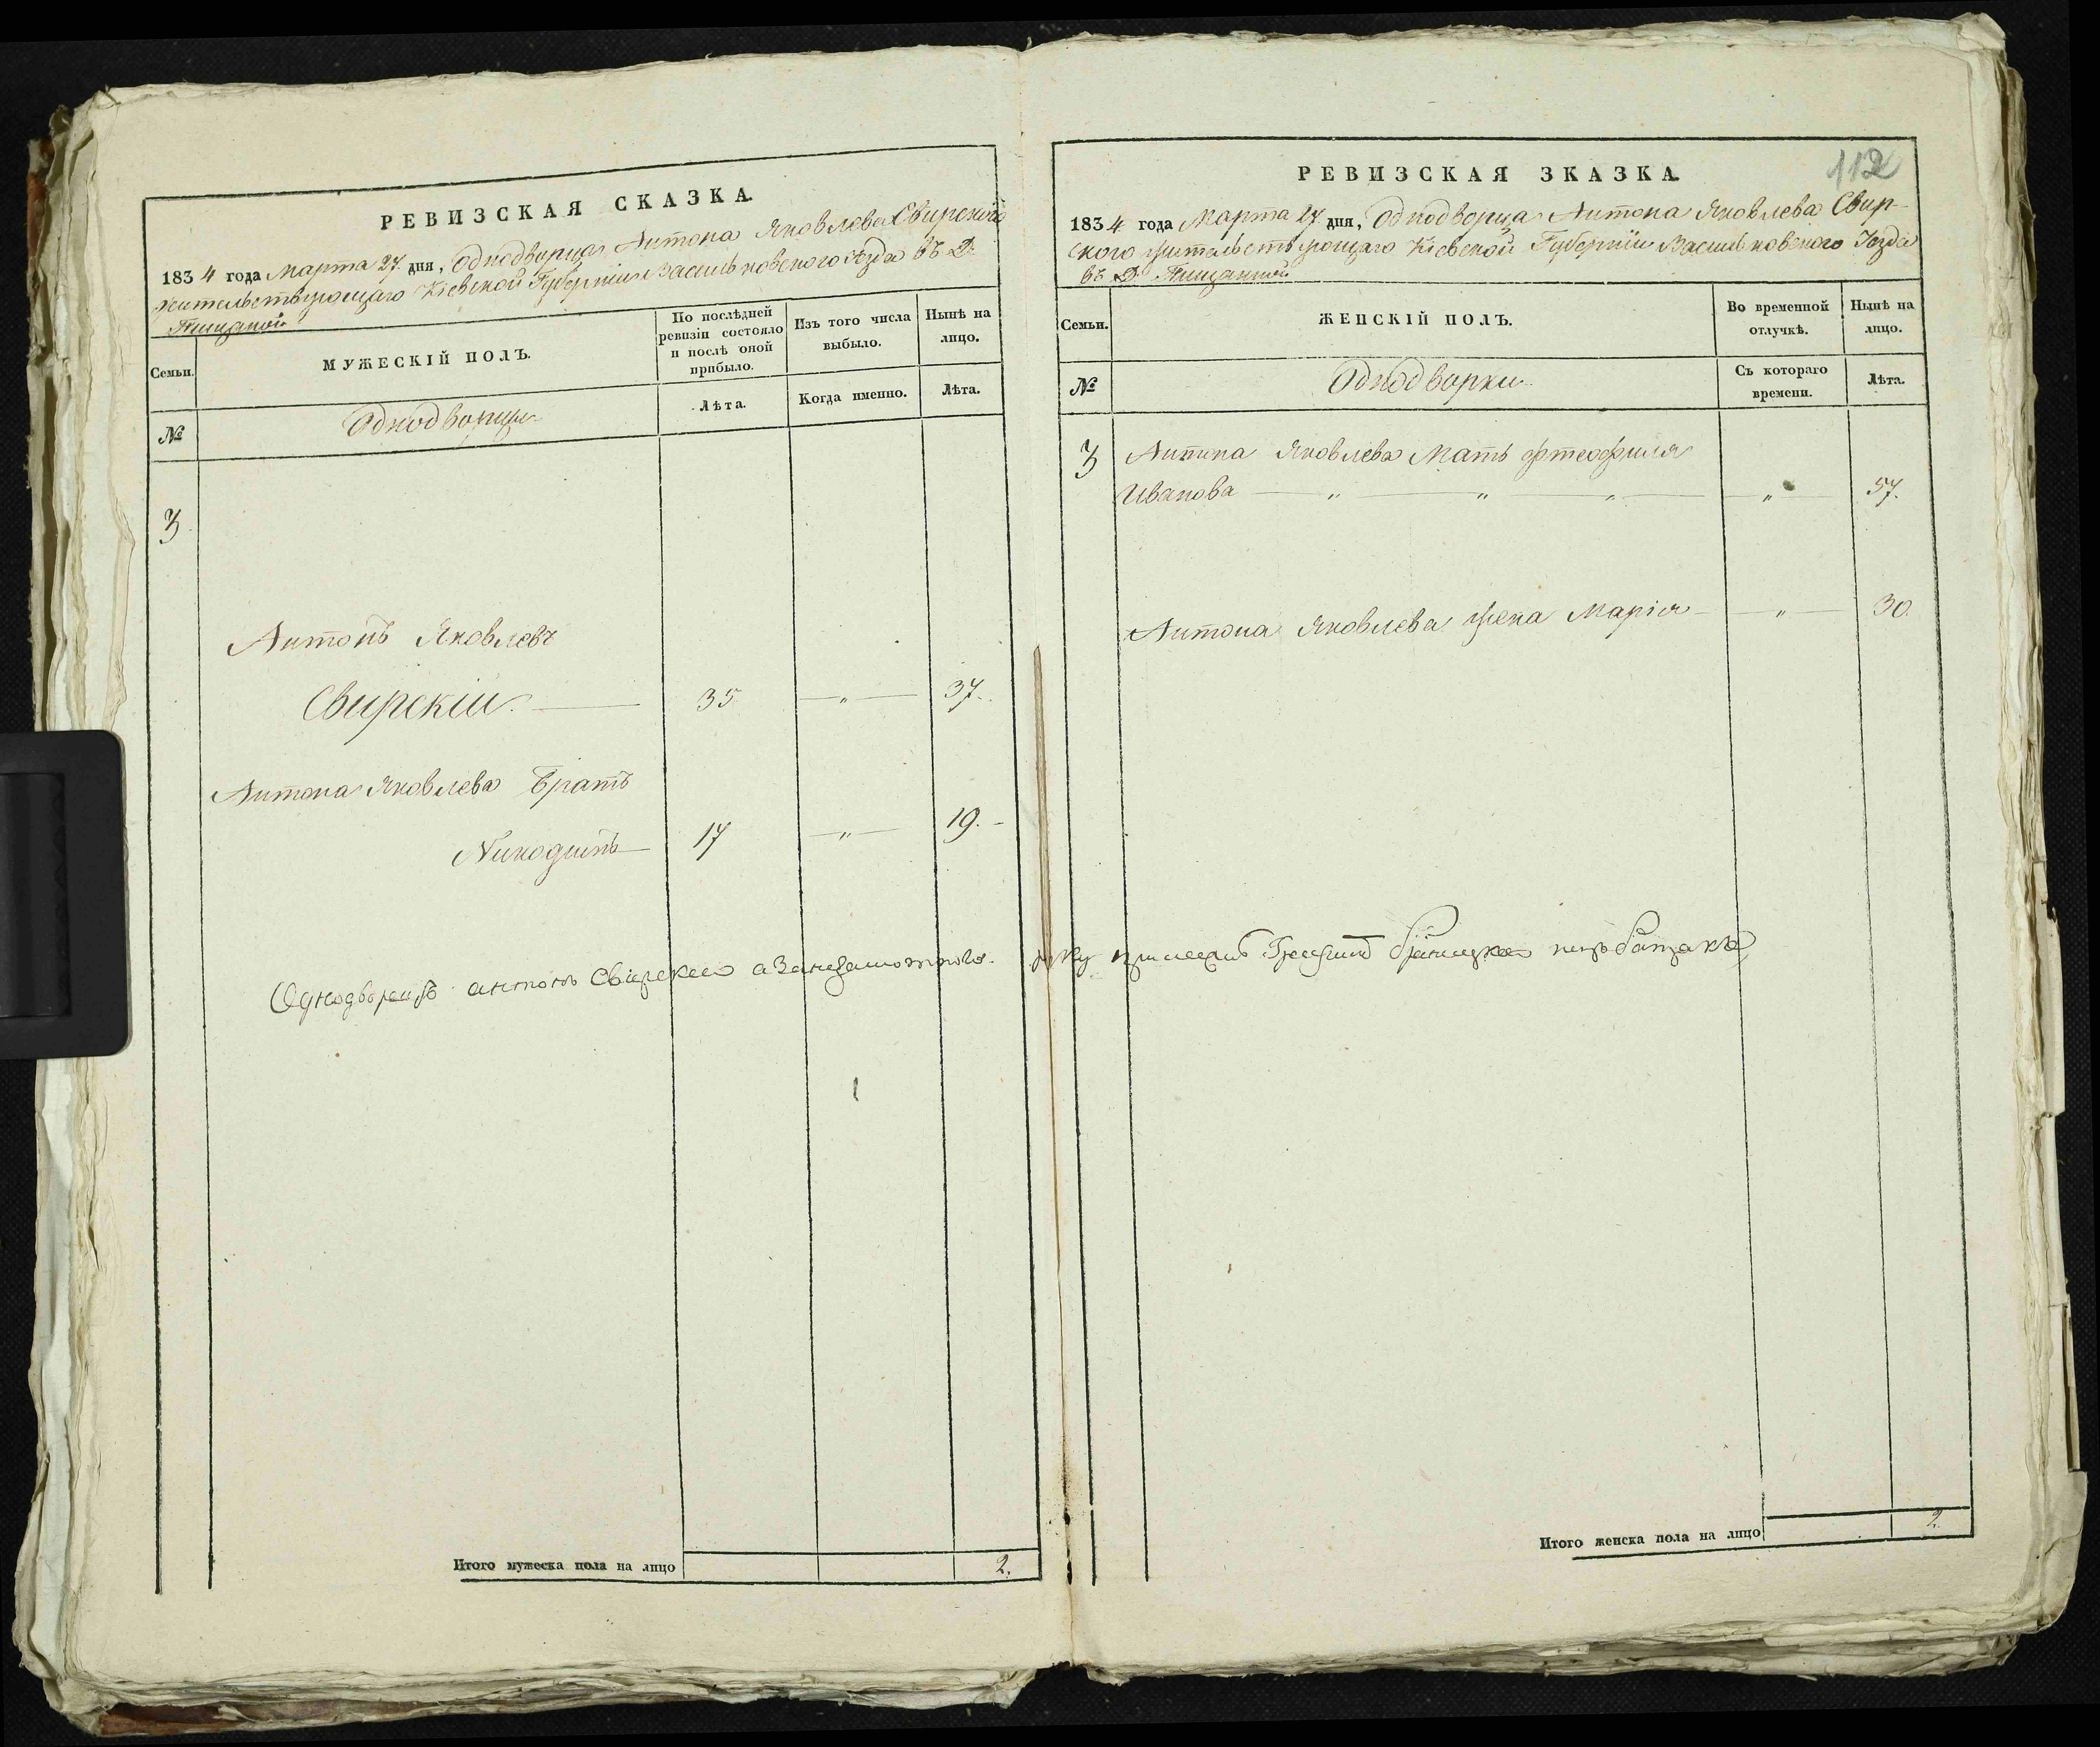 РЕВИЗСКАЯ СКАЗКА
1834 года Марта 27 дня, Однодворца Антона Яковлева Свирского
жительствующаго Кіевской Губерніи Васильковского Уезда въ Д.
Семьи.
МУЖЕСКІЙ ПОЛЪ.
По послѣдней ревизіи состояло и послѣ оной прибыло.
Изъ того числа выбыло.
Нынѣ на лицо.
№
Однодворцы
Лѣта.
Когда именно.
Лѣта.
3
Антонъ Яковлевъ
Свирскій — 35 — " — 37.
Антона Яковлева Братъ
Никодимъ — 17 — " — 19. –
Однодворецъ антонъ Свирский
Итого мужеска пола на лицо 2.
112
РЕВИЗСКАЯ ЗКАЗКА
1834 года Марта 27 дня, Однодворца Антона Яковлева Свир-
ского жительствующаго Кіевской Губерніи Васильковского Уезда
въ Д.
Семьи.
ЖЕНСКІЙ ПОЛЪ.
Во временной отлучкѣ.
Нынѣ на лицо.
№
Однодворки
Съ котораго времени.
Лѣта.
3
Антона Яковлева Мать
Иванова — " — " — " — " 57.
Антона Яковлева жена Марія — " — 30.
Итого женска пола на лицо 2.